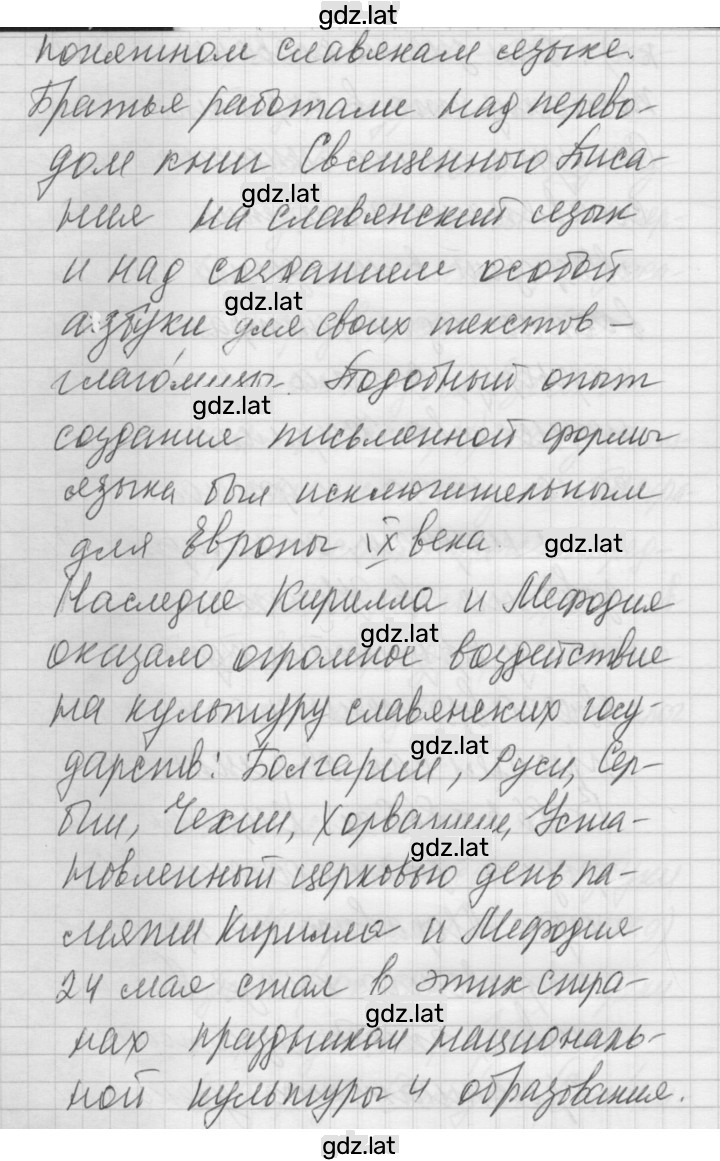 gdz.lat
понятном славянам языке.
Братья работали над перево-
дом книг Священного Писа-
gdz.lat
ния на славянский язык
и над созданием особой
gdz.lat
азбуки для своих текстов –
глаголицы. Подобный опыт
gdz.lat
создания письменной формы
языка был исключительным
для Европы IX века.
gdz.lat
Наследие Кирилла и Мефодия
gdz.lat
оказало огромное воздействие
на культуру славянских госу-
gdz.lat
дарств: Болгарии, Руси, Сер-
бии, Чехии, Хорватии, Уста-
gdz.lat
новленный церковью день па-
мяти Кирилла и Мефодия
24 мая стал в этих стра-
gdz.lat
нах праздником националь-
ной культуры и образования.
gdz.lat